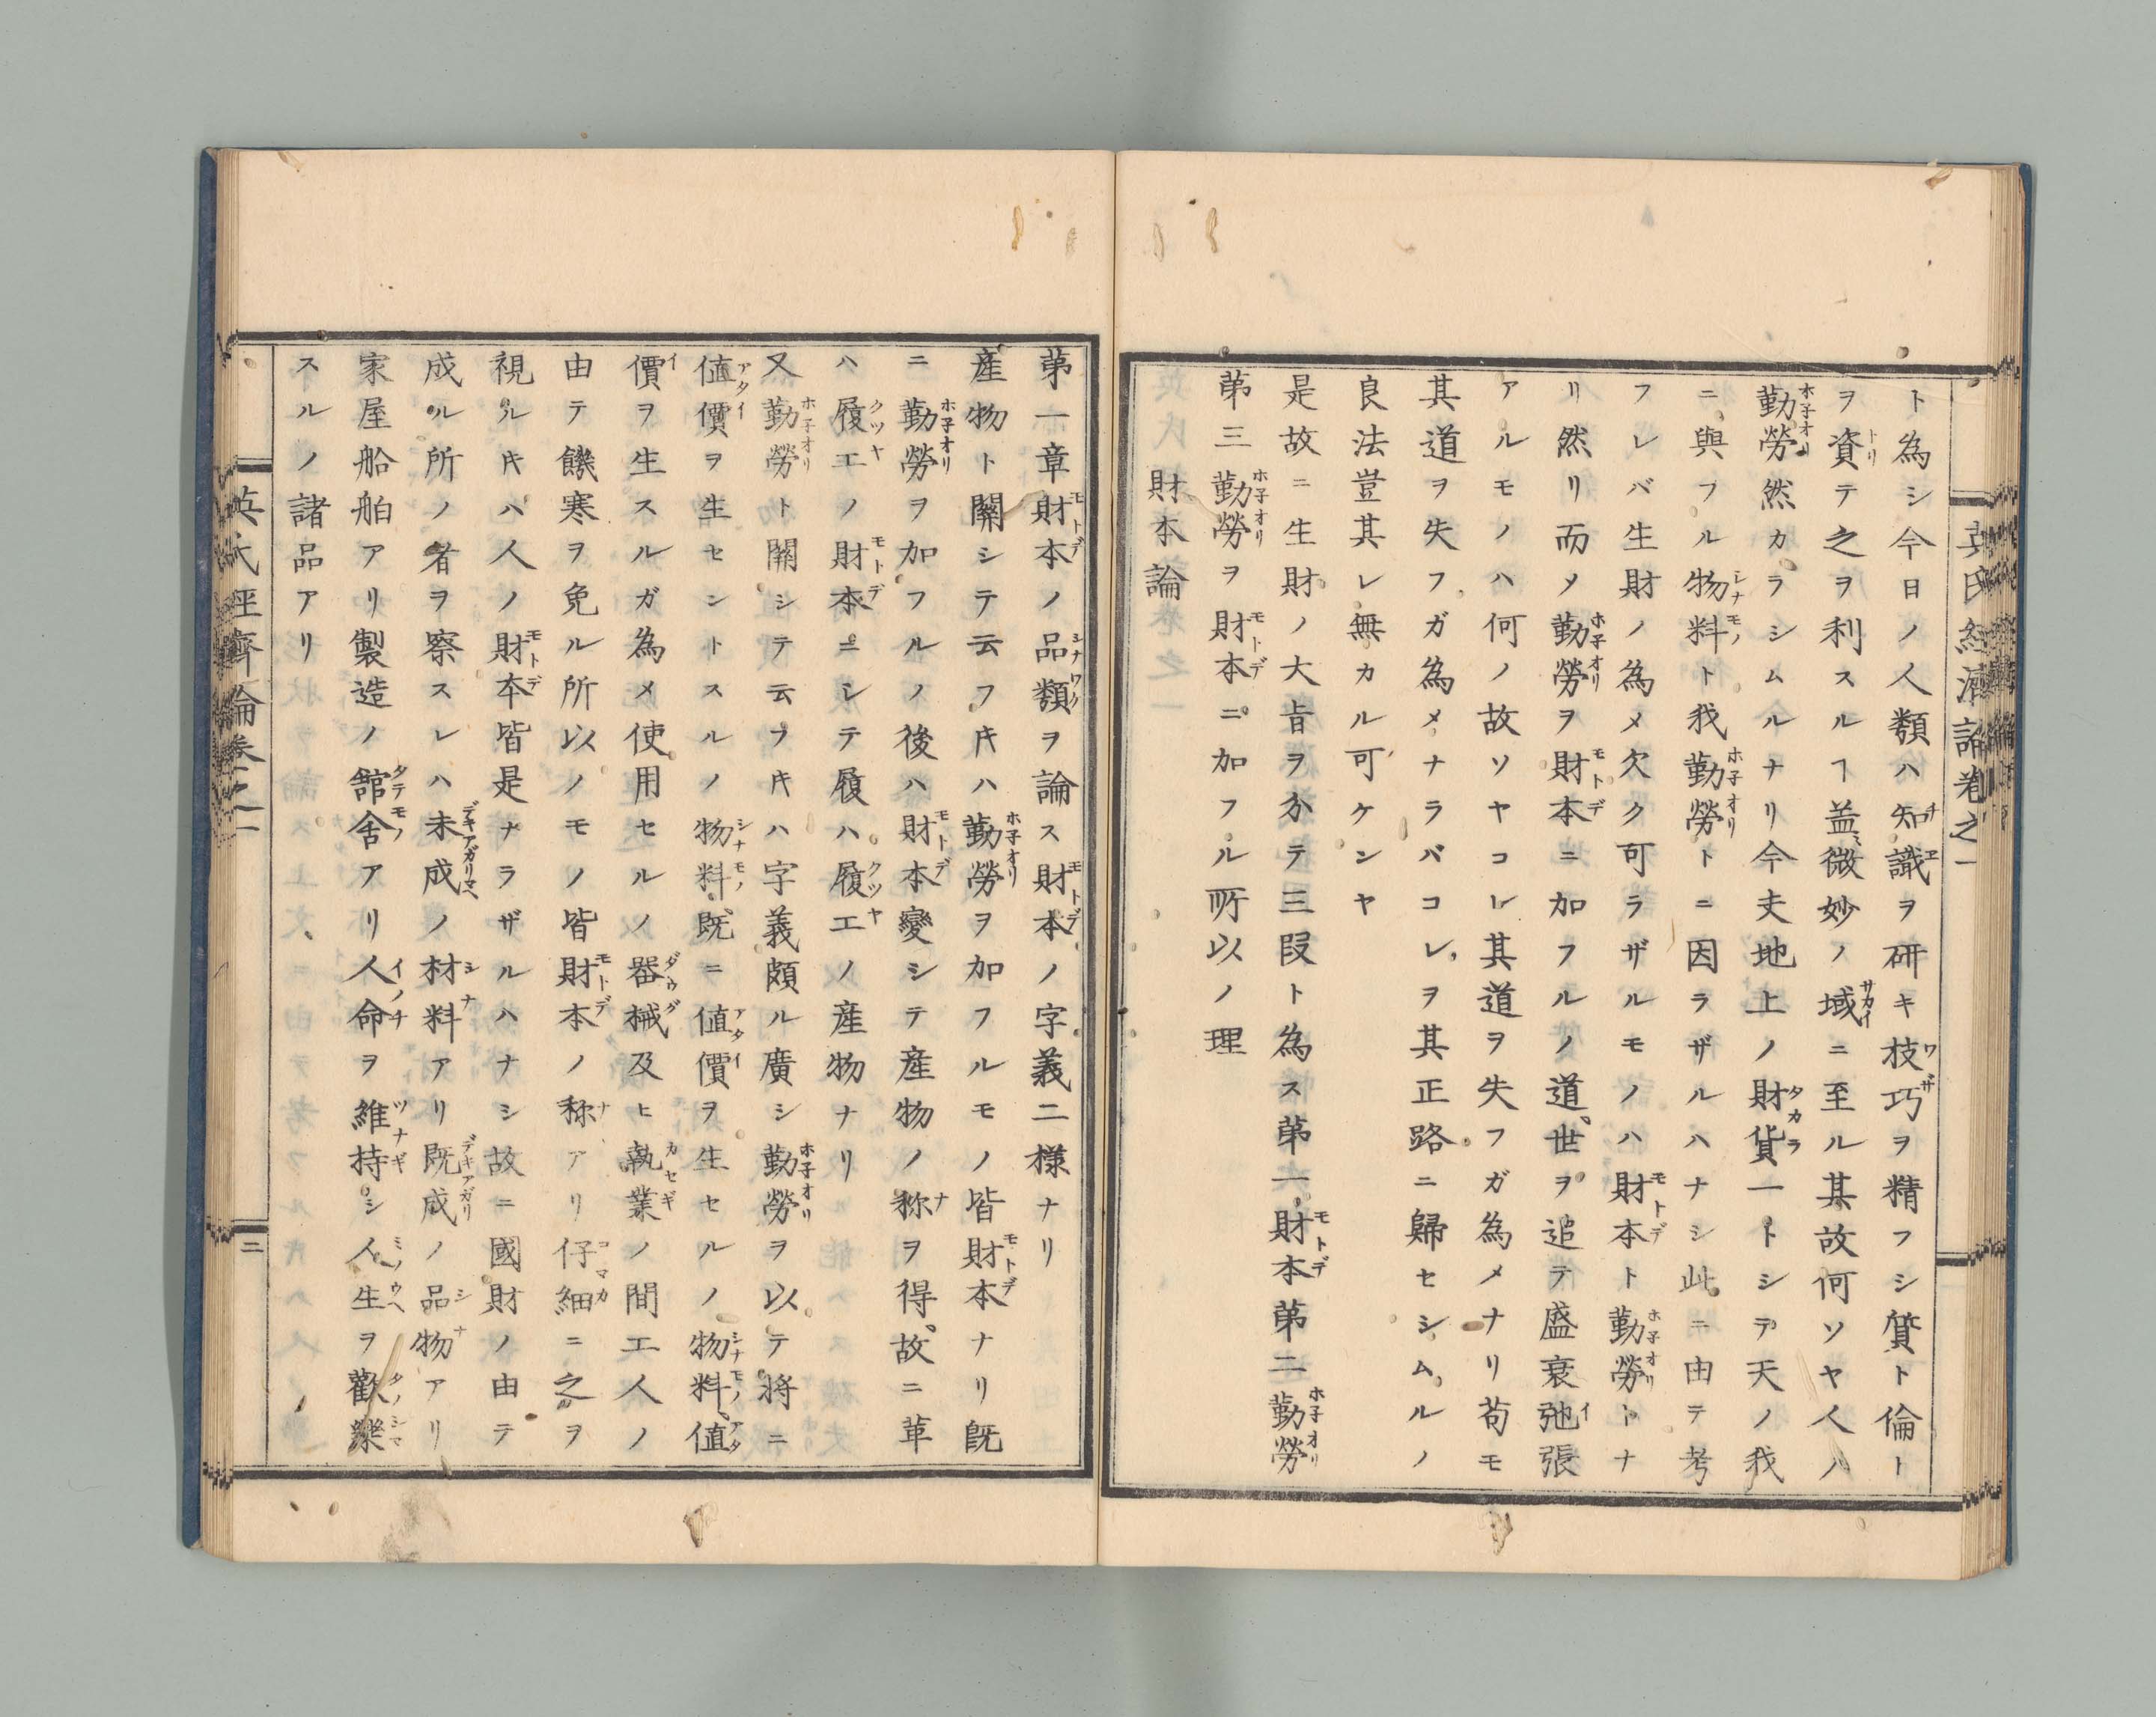 英氏經濟論卷之一
ト為シ今日ノ人類ハ知識ヲ研キ枝巧ヲ精フシ貿ト倫ト
ヲ資テ之ヲ利スルヿ益微妙ノ域ニ至ル其故何ソヤ人ハ
勤勞然カラシムルナリ今夫地上ノ財貨一トシテ天ノ我
ニ與フル物料ト我勤勞トニ因ラザルハナシ此ニ由テ考
フレバ生財ノ為メ欠ク可ラザルモノハ財本ト勤勞トナ
リ然リ而メ勤勞ヲ財本ニ加フルノ道世ヲ追テ盛衰弛張
アルモノハ何ノ故ソヤコレ其道ヲ失フガ為メナリ苟モ
其道ヲ失フガ為メナラバコレヲ其正路ニ歸セシムルノ
良法豈其レ無カル可ケンヤ
是故ニ生財ノ大旨ヲ分テ三段ト為ス第一財本第二勤勞
第三勤勞ヲ財本ニ加フル所以ノ理
財本論
第一章財本ノ品類ヲ論ス財本ノ字義二樣ナリ
産物ト關シテ云フ𪜈ハ勤勞ヲ加フルモノ皆財本ナリ既
ニ勤勞ヲ加フルノ後ハ財本變シテ産物ノ称ヲ得故ニ革
ハ履工ノ財本ニシテ履ハ履工ノ産物ナリ
又勤勞ト關シテ云フ𪜈ハ字義頗ル廣シ勤勞ヲ以テ將ニ
値價ヲ生セントスルノ物料既ニ値價ヲ生セルノ物料値
價ヲ生スルガ為メ使用セルノ器械及ヒ執業ノ間工人ノ
由テ饑寒ヲ免ル所以ノモノ皆財本ノ称アリ仔細ニ之ヲ
視ル𪜈ハ人ノ財本皆是ナラザルハナシ故ニ國財ノ由テ
成ル所ノ者ヲ察スレハ未成ノ材料アリ既成ノ品物アリ
家屋船舶アリ製造ノ舘舍アリ人命ヲ維持シ人生ヲ歡樂
スルノ諸品アリ
英氏經濟論卷之一
二